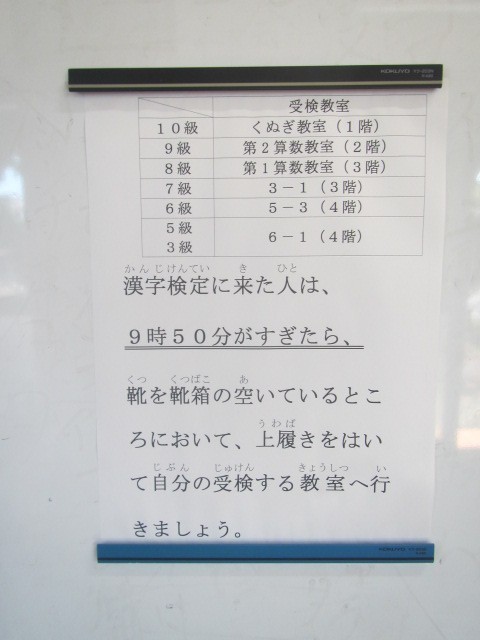 KOKUYO
受検教室
10級 くぬぎ教室(1階)
9級 第2算数教室(2階)
8級 第1算数教室(3階)
7級 3-1(3階)
6級 5-3(4階)
5級
3級 6-1(4階)
かんじけんてい き ひと
漢字検定に来た人は、
9時50分がすぎたら、
くつ くつばこ あ
靴を靴箱の空いているとこ
うわば
ろにおいて、上履きをはい
じぶん じゅけん きょうしつ い
て自分の受検する教室へ行
きましょう。
KOKUYO